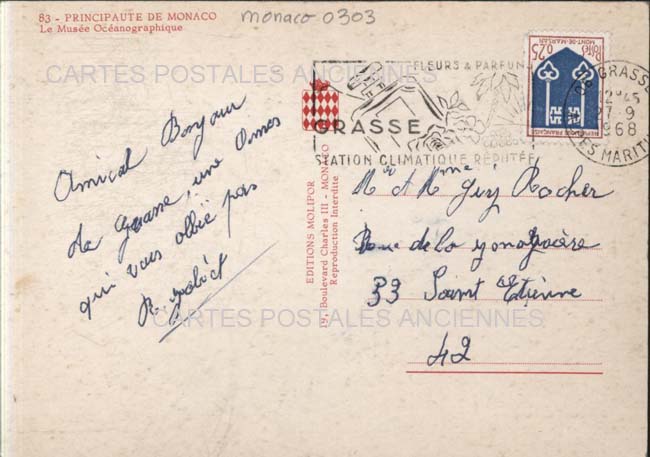 83 - PRINCIPAUTE DE MONACO
Le Musée Océanographique
monaco 0303
CARTES POSTALES ANCIENNES
Amical Bonjour
de Grasse, une Amies
qui vous oblie pas
R.
EDITIONS MOLIPOR
19, Boulevard Charles III - MONACO
Reproduction Interdite
FLEURS & PARFUMS
GRASSE
STATION CLIMATIQUE RÉPUTÉE
0,25
MONT-DE-MARSAN
REPUBLIQUE FRANÇAISE
POSTES
GRASSE
12H45
7-9
1968
ALPES MARITIMES
Mr et Mme Guy Rocher
Rue de la
33 Saint Etienne
42
CARTES POSTALES ANCIENNES